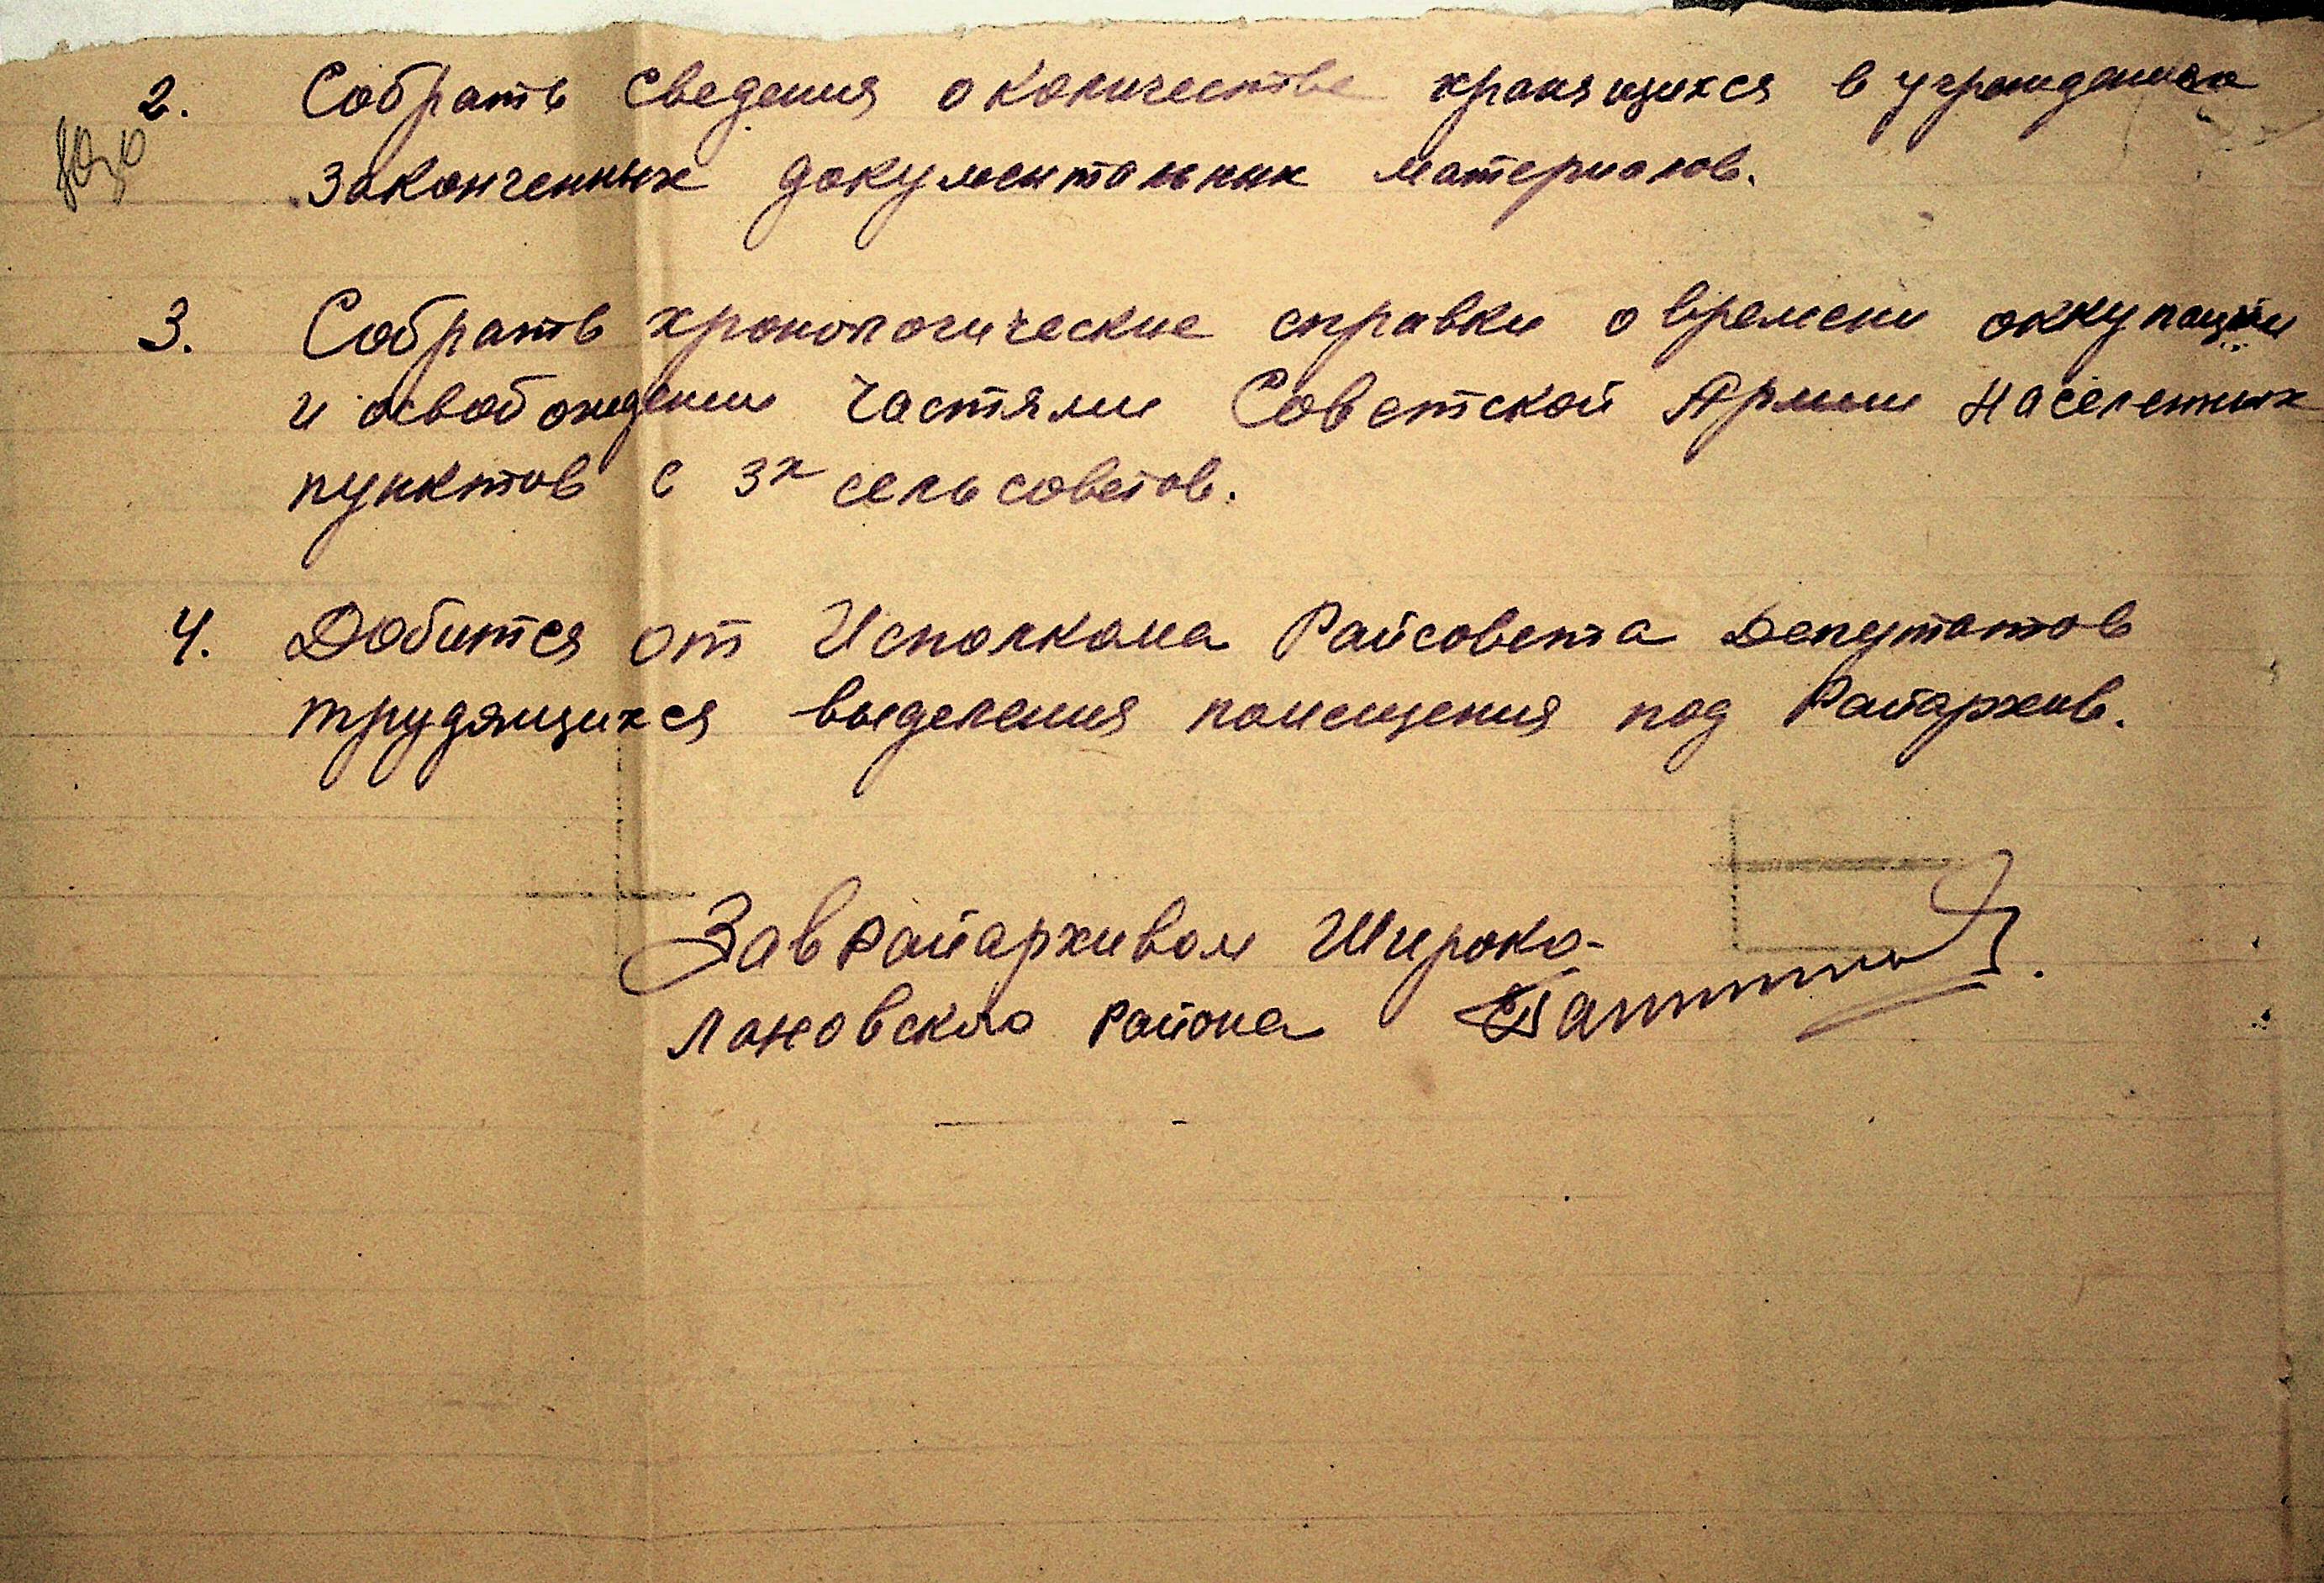 2. Собрать сведения о количестве хранящихся в учреждениях
законченных документальных материалов.
3. Собрать хронологические справки о времени оккупации
и освобождении частями Советской Армии населенных
пунктов с 3х сельсоветов.
4. Добится от Исполкома Райсовета Депутатов
трудящихся выделения помещения под Райархив.
Зав Райархивом Широко-
лановского района